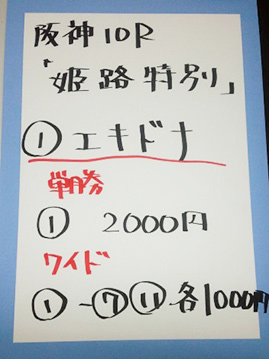 阪神10R
「姫路特別」
①エキドナ
単勝
① 2000円
ワイド
①-⑦⑪各1000円